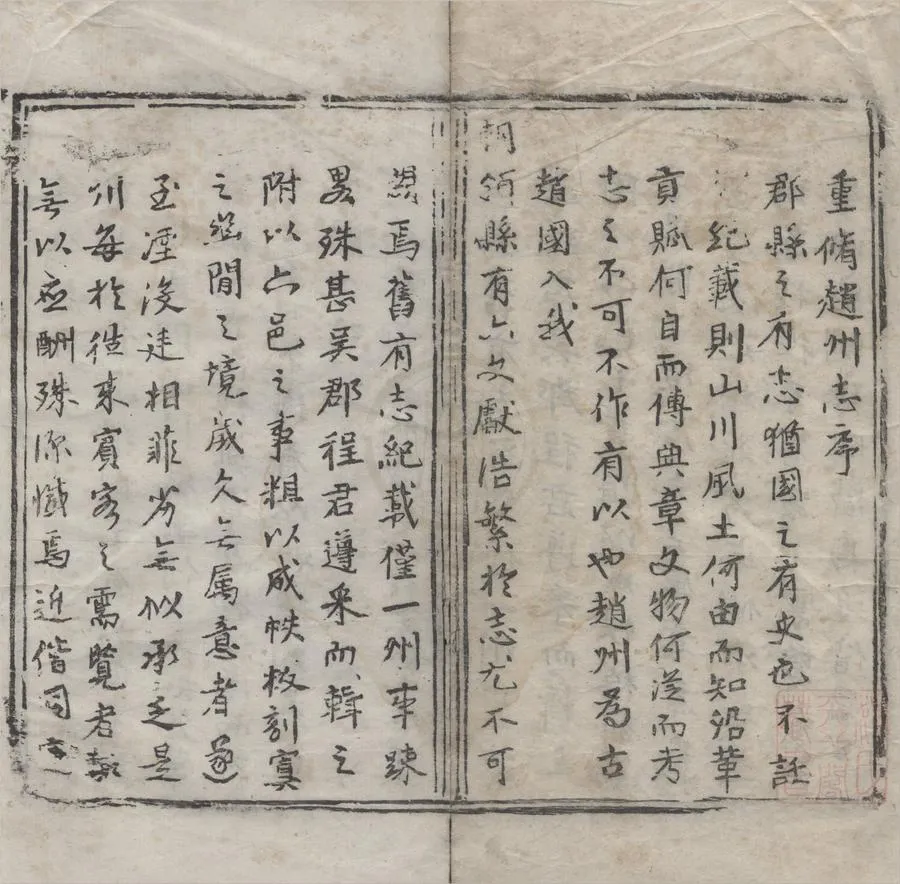 重脩趙州志序
郡縣之有志猶國之有史也不託
紀載則山川風土何由而知沿革
貢賦何自而傳典章文物何從而考
志之不可不作有以也趙州為古
趙國入我
朝領縣有六文獻浩繁於志尤不可
焉舊有志紀載僅一州事踈
畧殊甚吴郡程君遵采而輯之
附以六邑之事粗以成帙板刻寘
之幽閒之境歲久無属意者遂
至湮没建相菲劣無似承乏是
州每於徃来賓客之需覽者
無以应酬殊深慽焉近偕同